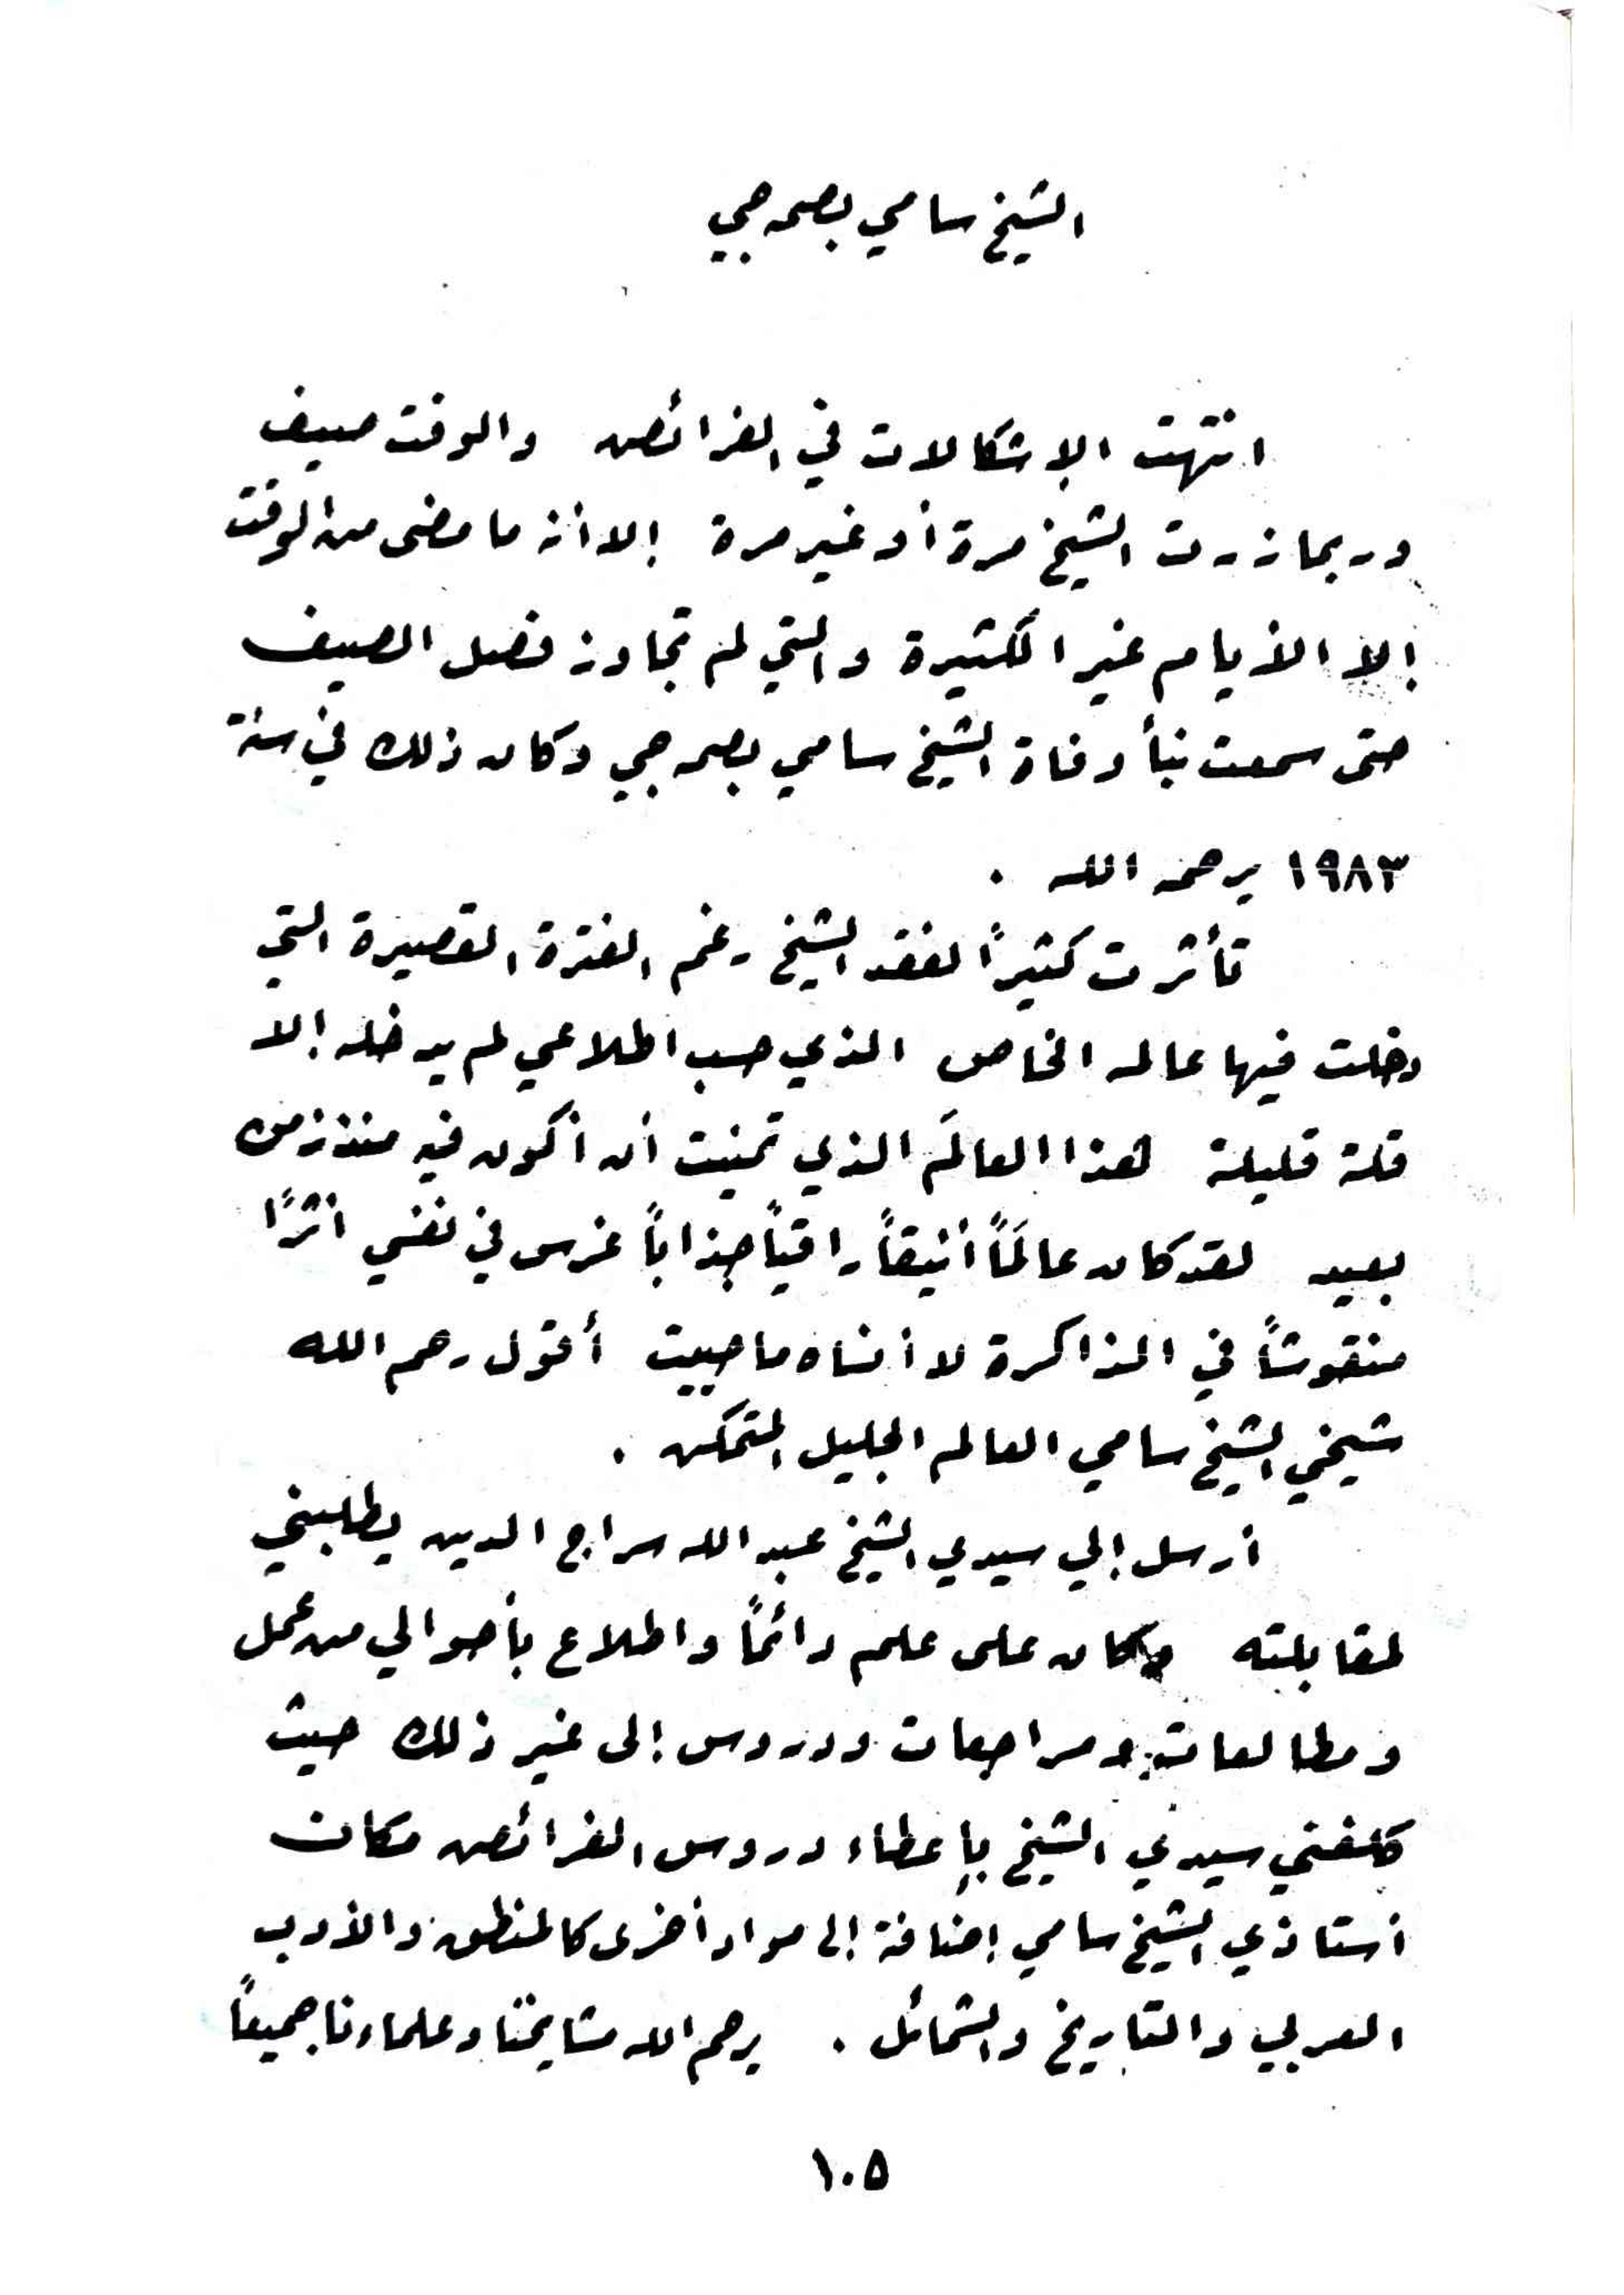 الشيخ سامي بصمه جي
انتهت الإشكالات في الفرائض والوقت صيف
وربما زرت الشيخ مرة أو غير مرة إلا أنه ما مضى من الوقت
إلا الأيام غير الكثيرة والتي لم تجاوز فصل الصيف
حتى سمعت نبأ وفاة الشيخ سامي بصمه جي وكان ذلك في سنة
١٩٨٣ يرحمه الله .
تأثرت كثيراً لفقد الشيخ رغم الفترة القصيرة التي
دخلت فيها عالمه الخاص الذي حسب اطلاعي لم يدخله إلا
قلة قليلة هذا العالَم الذي تمنيت أن أكون فيه منذ زمن
بعيد لقد كان عالَماً أنيقاً راقياً جذاباً غرس في نفسي أثراً
منقوشاً في الذاكرة لا أنساه ما حييت أقول رحم الله
شيخي الشيخ سامي العالم الجليل المتمكن .
أرسل إلي سيدي الشيخ عبد الله سراج الدين يطلبني
لمقابلته وكان على علم دائماً واطلاع بأحوالي من عمل
ومطالعات ومراجعات ودروس إلى غير ذلك حيث
كلفني سيدي الشيخ بإعطاء دروس الفرائض مكان
أستاذي الشيخ سامي إضافة إلى مواد أخرى كالمنطق والأدب
العربي والتاريخ والشمائل . يرحم الله مشايخنا وعلماءنا جميعاً
١٠٥